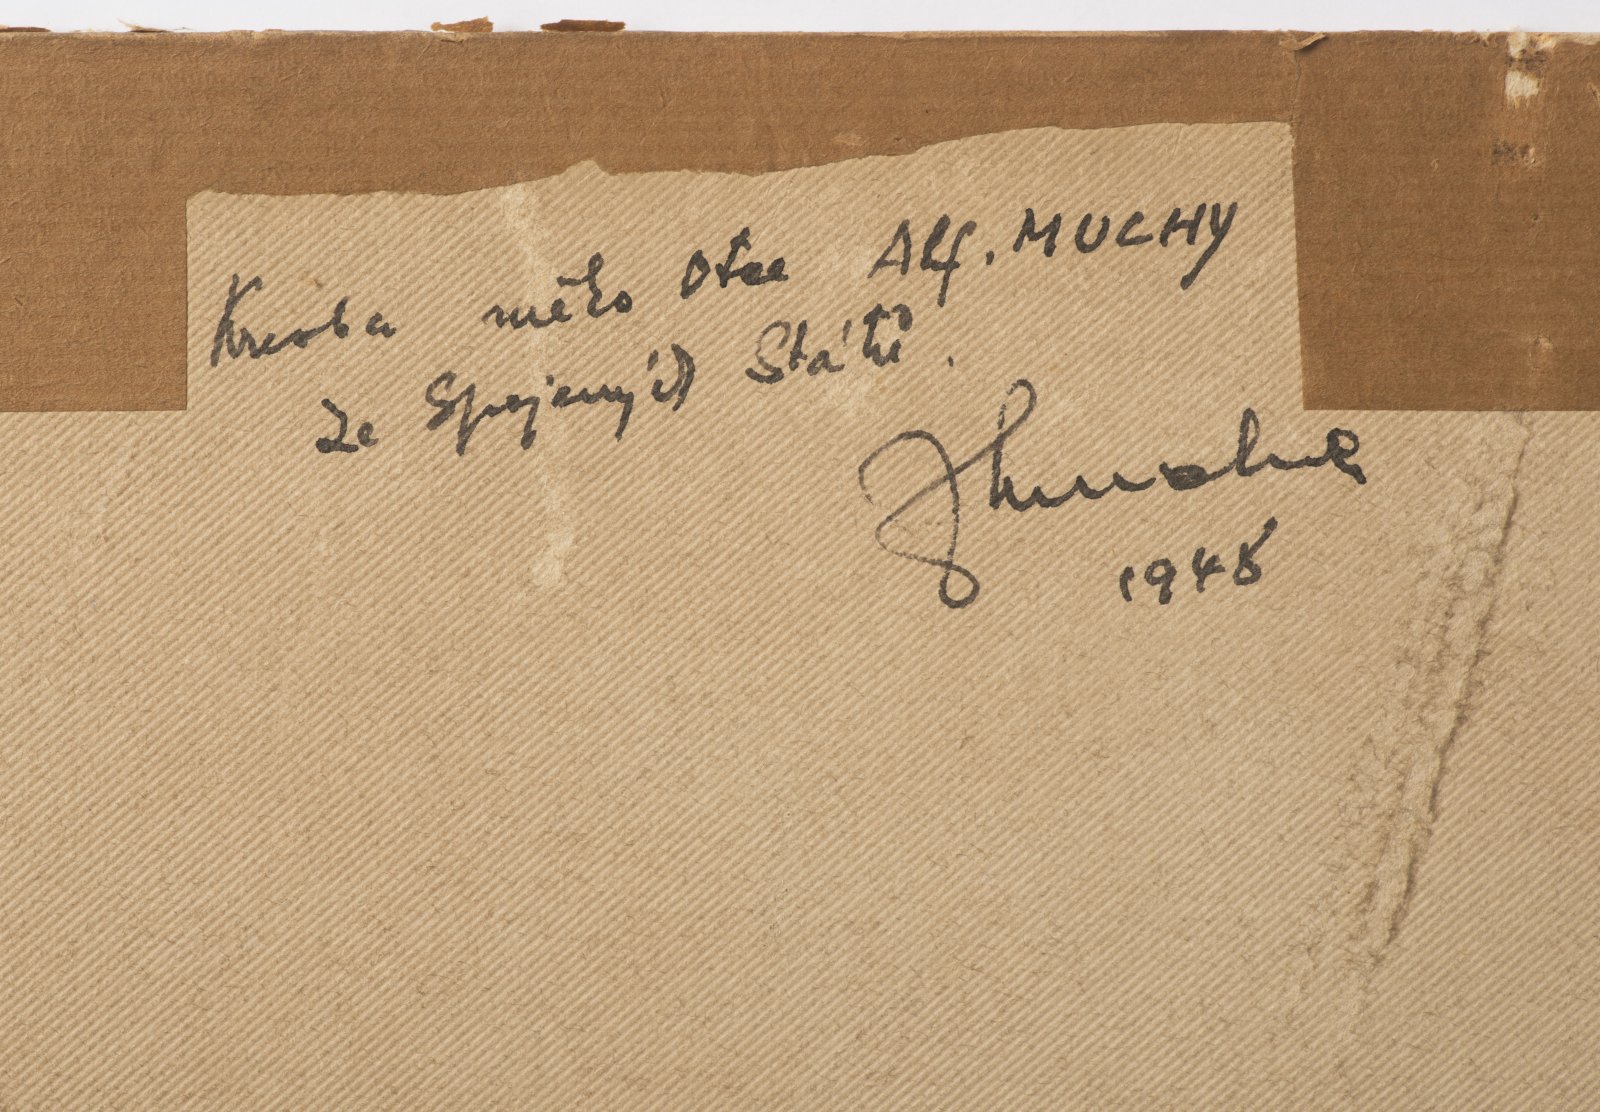 Kresba mého Otce Alf. MUCHY
ze Spojených Států.
JMucha
1948